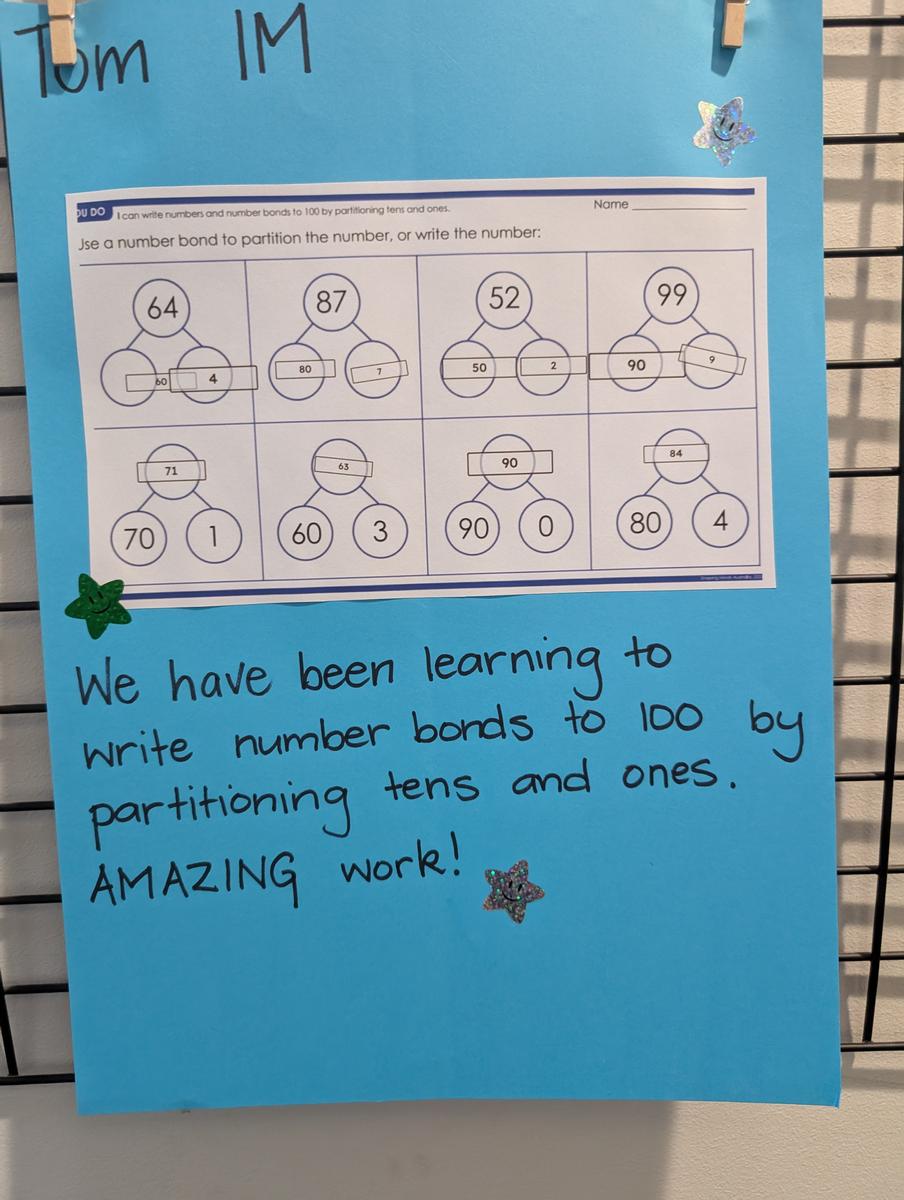 Tom 1M
OU DO I can write numbers and number bonds to 100 by partitioning tens and ones. Name
Jse a number bond to partition the number, or write the number:
64 87 52 99
60 4 80 7 50 2 90 9
71 63 90 84
70 1 60 3 90 0 80 4
We have been learning to
write number bonds to 100 by
partitioning tens and ones.
AMAZING work!